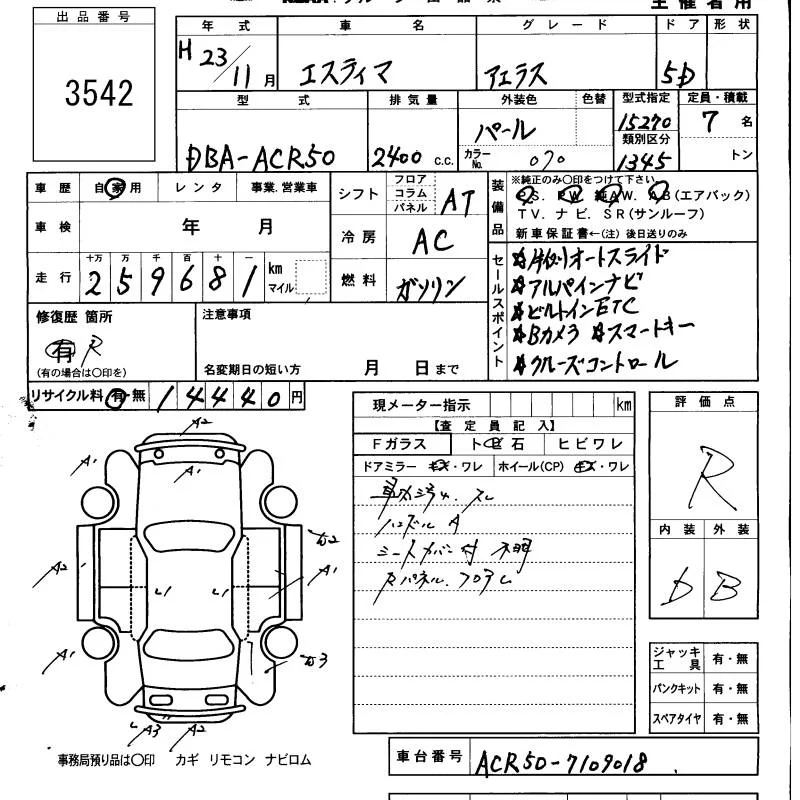 出品番号
3542
主催者用
年式 車名 グレード ドア 形状
H 23/11月 エスティマ アエラス 5D
型式 排気量 外装色 色替 型式指定 定員・積載
DBA-ACR50 2400 c.c. パール 15270 7名
カラーNo. 070 類別区分 1345 トン
車歴 自家用 レンタ 事業.営業車
車検 年 月
走行 十万 万 千 百 十 一
259681 km マイル
シフト フロア コラム パネル AT
冷房 AC
燃料 ガソリン
装備品 ※純正のみ〇印をつけて下さい
P.S. P.W. 純A.W. A.B(エアバック)
T.V. ナビ. S R(サンルーフ)
新車保証書←(注) 後日送りのみ
セールスポイント
☆片側オートスライド
☆アルパインナビ
☆ビルトインETC
☆Bカメラ ☆スマートキー
☆クルーズコントロール
修復歴 箇所
有 R
(有の場合は〇印を)
注意事項
名変期日の短い方 月 日まで
リサイクル料 有・無 14440円
現メーター指示 km
【査定員記入】
Fガラス ト ビ 石 ヒビワレ
ドアミラー キズ・ワレ ホイール(CP) キズ・ワレ
ハンドル A
シートカバー付 不明
評価点
R
内装 外装
D B
ジャッキ工具 有・無
パンクキット 有・無
スペアタイヤ 有・無
A2
A1 A1
A2 A1
A1
A3 A2
事務局預り品は〇印 カギ リモコン ナビロム
車台番号 ACR50-7109018